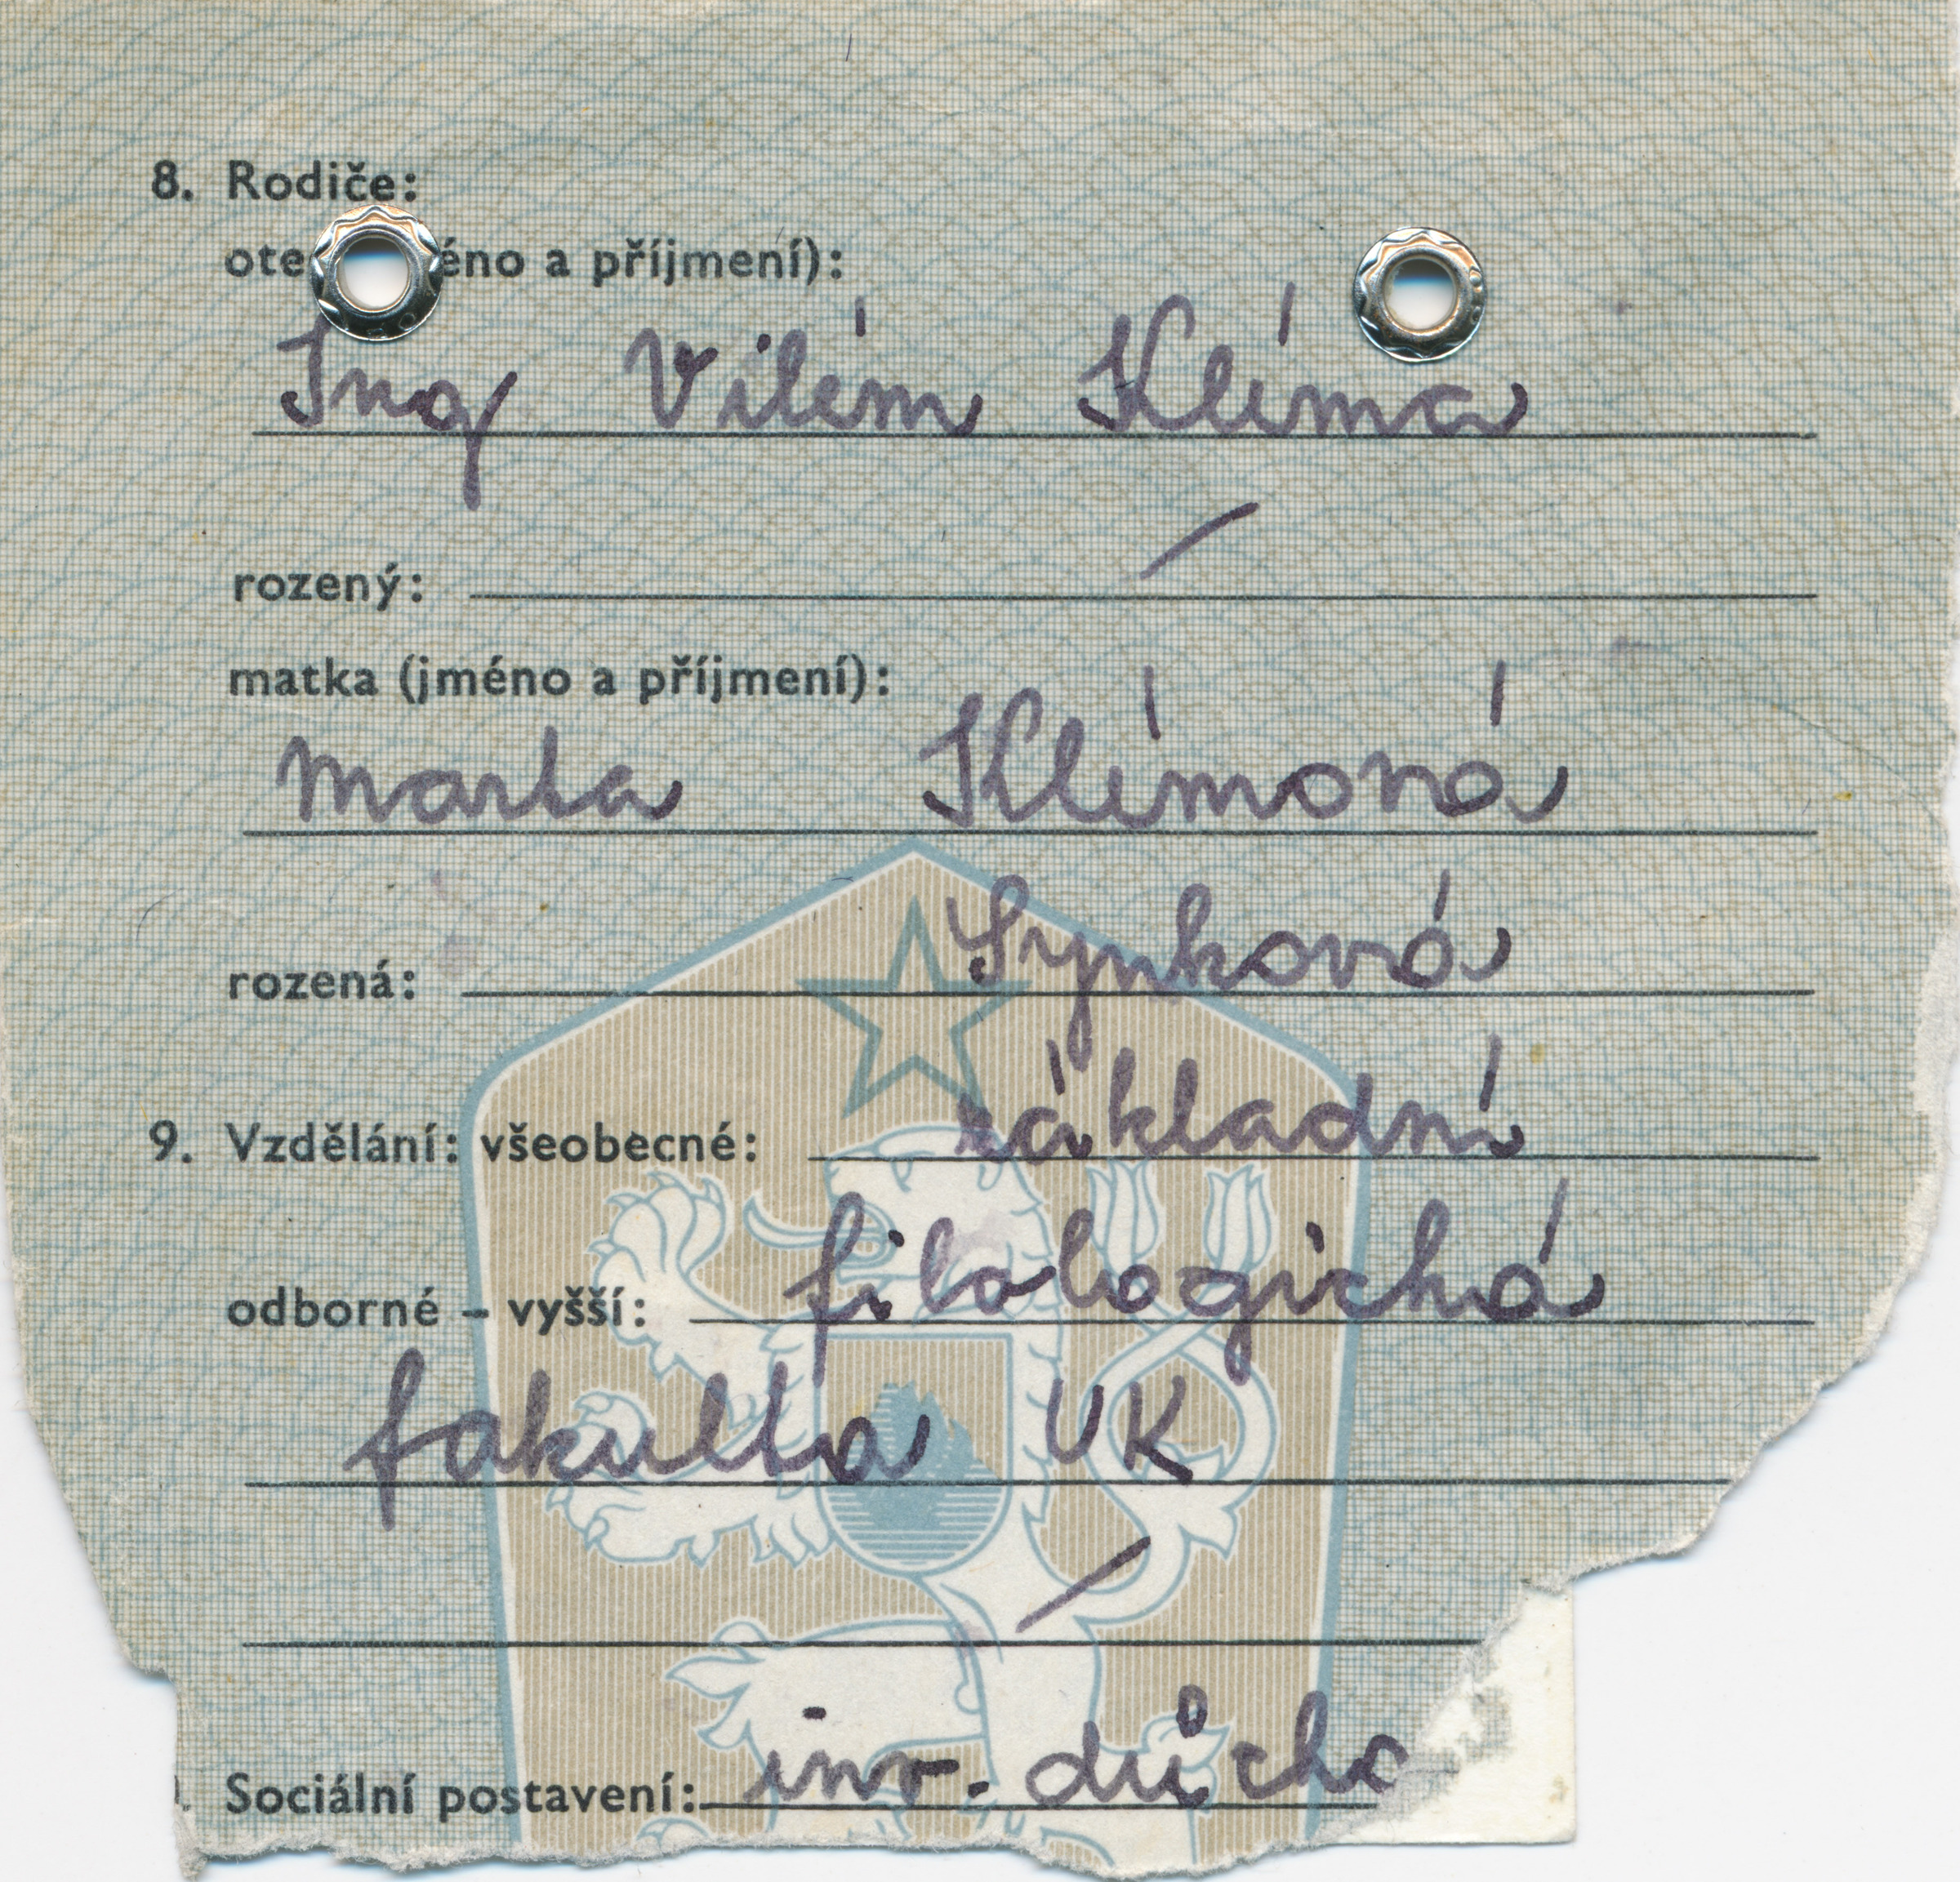 8. Rodiče:
ote éno a příjmení):
Ing Vilém Klíma
rozený:
matka (jméno a příjmení):
Marta Klímová
Synková
rozená:
základní
9. Vzdělání: všeobecné:
filologická
odborné – vyšší:
fakulta UK
inv. důcho
Sociální postavení: